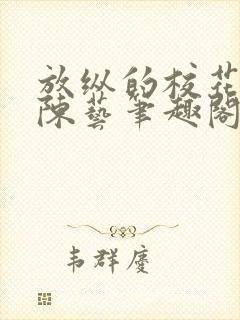 放纵的校花
陈藝笔趣阁
韦群庆